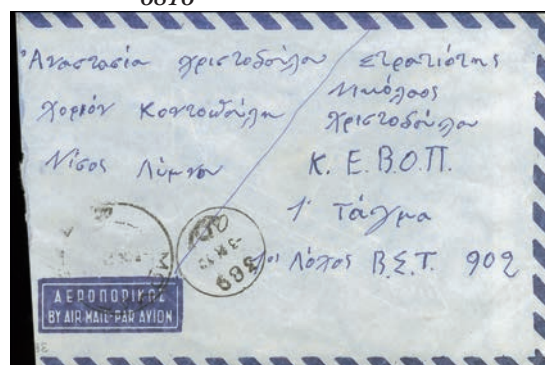 Αναστασία Χριστοδούλου
Χοριόν Κοντοπούλη
Νίσος Λύμνου
Στρατιότης
Νικόλαος
Χριστοδούλου
Κ.Ε.Β.Ο.Π.
1' Τάγμα
1ος Λόχος Β.Σ.Τ. 902
369
ΑΕΡΟΠΟΡΙΚΩΣ
BY AIR MAIL-PAR AVION